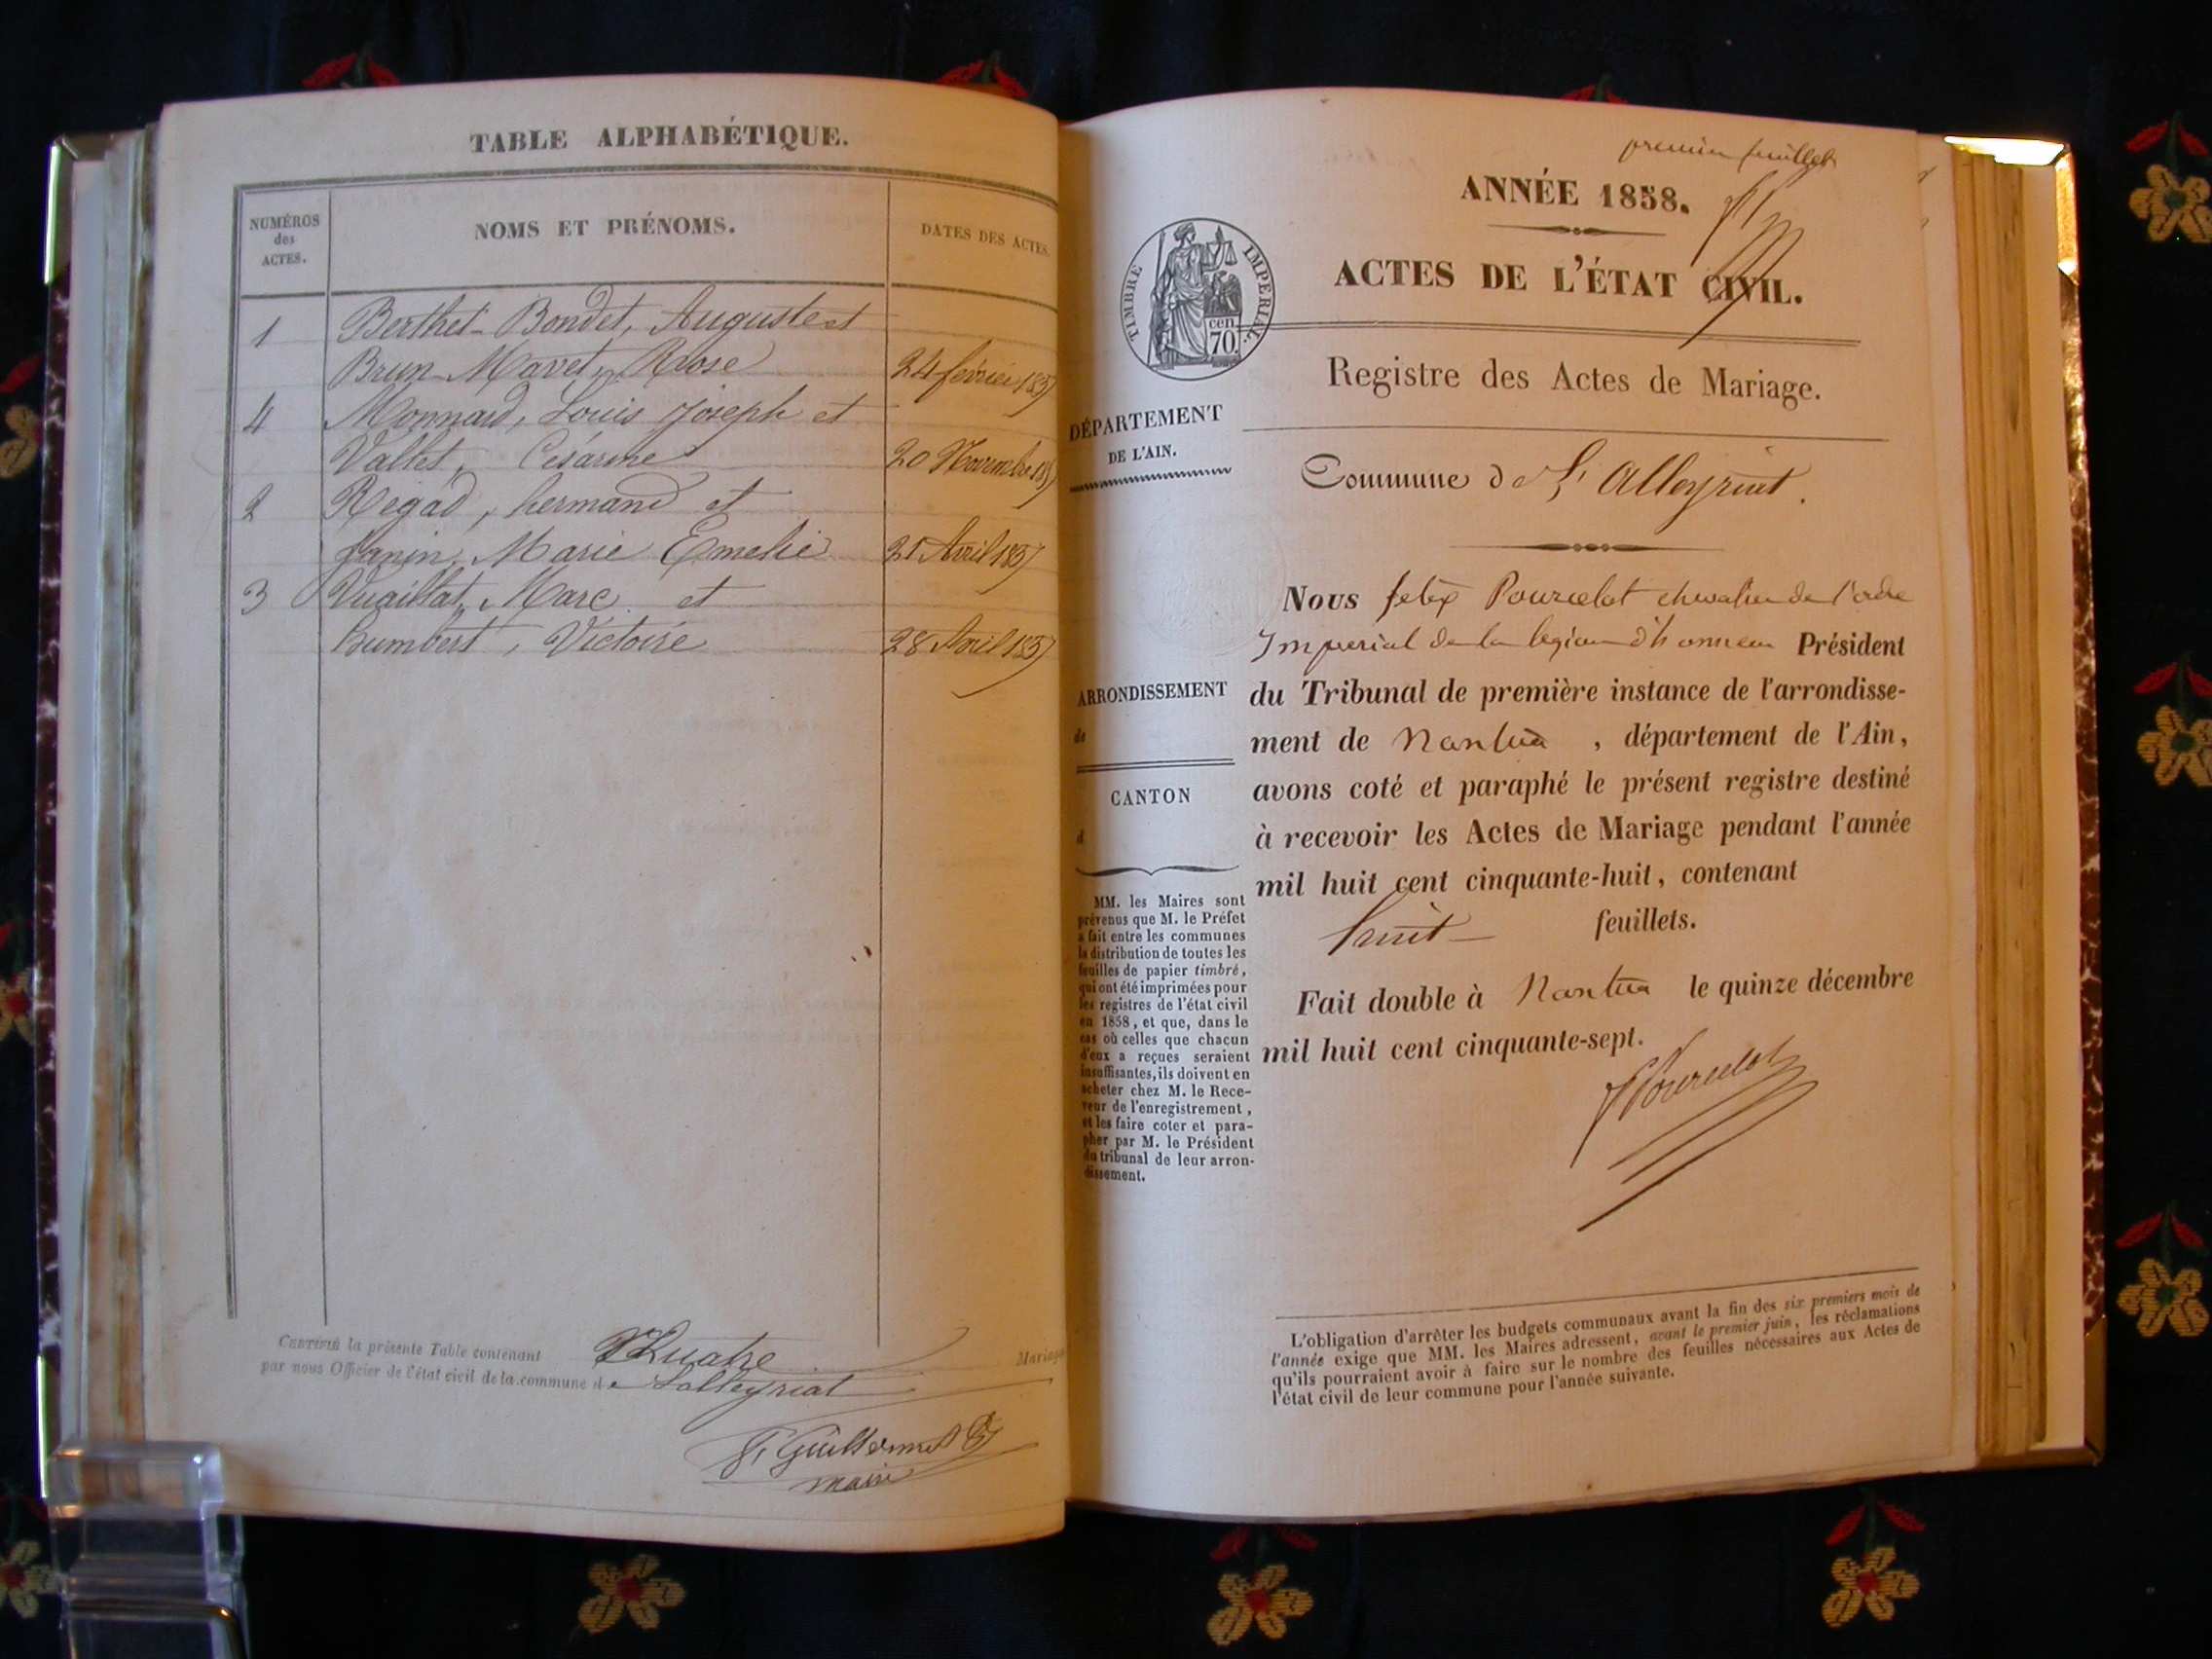 TABLE ALPHABÉTIQUE.
NUMÉROS
des
ACTES.
NOMS ET PRÉNOMS.
DATES DES ACTES.
1 Berthet-Bondet, Auguste et
Brun Mavet, Rose 24 février 1857
4 Monnard, Louis Joseph et
Vallet, Césarine 20 Novembre 1857
2 Regad, hermand et
Janin, Marie Emelie 21 Avril 1857
3 Vuaillat, Marc et
humbert, Victoire 28 Avril 1857
CERTIFIÉ la présente Table contenant Quatre Mariages
par nous Officier de l'état civil de la commune de Lalleyriat
Guillermet
maire
premier feuillet
ANNÉE 1858.
ACTES DE L'ÉTAT CIVIL.
TIMBRE IMPERIAL.
cen.
70.
Registre des Actes de Mariage.
DÉPARTEMENT
DE L'AIN.
Commune de Lalleyriat.
ARRONDISSEMENT
de
CANTON
d
MM. les Maires sont
prévenus que M. le Préfet
a fait entre les communes
la distribution de toutes les
feuilles de papier timbré,
qui ont été imprimées pour
les registres de l'état civil
en 1858, et que, dans le
cas où celles que chacun
d'eux a reçues seraient
insuffisantes, ils doivent en
acheter chez M. le Rece-
veur de l'enregistrement,
et les faire coter et para-
pher par M. le Président
du tribunal de leur arron-
dissement.
Nous felix Pourcelot chevalier de l'ordre
Imperial de la legion d'honneur Président
du Tribunal de première instance de l'arrondisse-
ment de Nantua, département de l'Ain,
avons coté et paraphé le présent registre destiné
à recevoir les Actes de Mariage pendant l'année
mil huit cent cinquante-huit, contenant
huit feuillets.
Fait double à Nantua le quinze décembre
mil huit cent cinquante-sept.
Pourcelot
L'obligation d'arrêter les budgets communaux avant la fin des six premiers mois de
l'année exige que MM. les Maires adressent, avant le premier juin, les réclamations
qu'ils pourraient avoir à faire sur le nombre des feuilles nécessaires aux Actes de
l'état civil de leur commune pour l'année suivante.